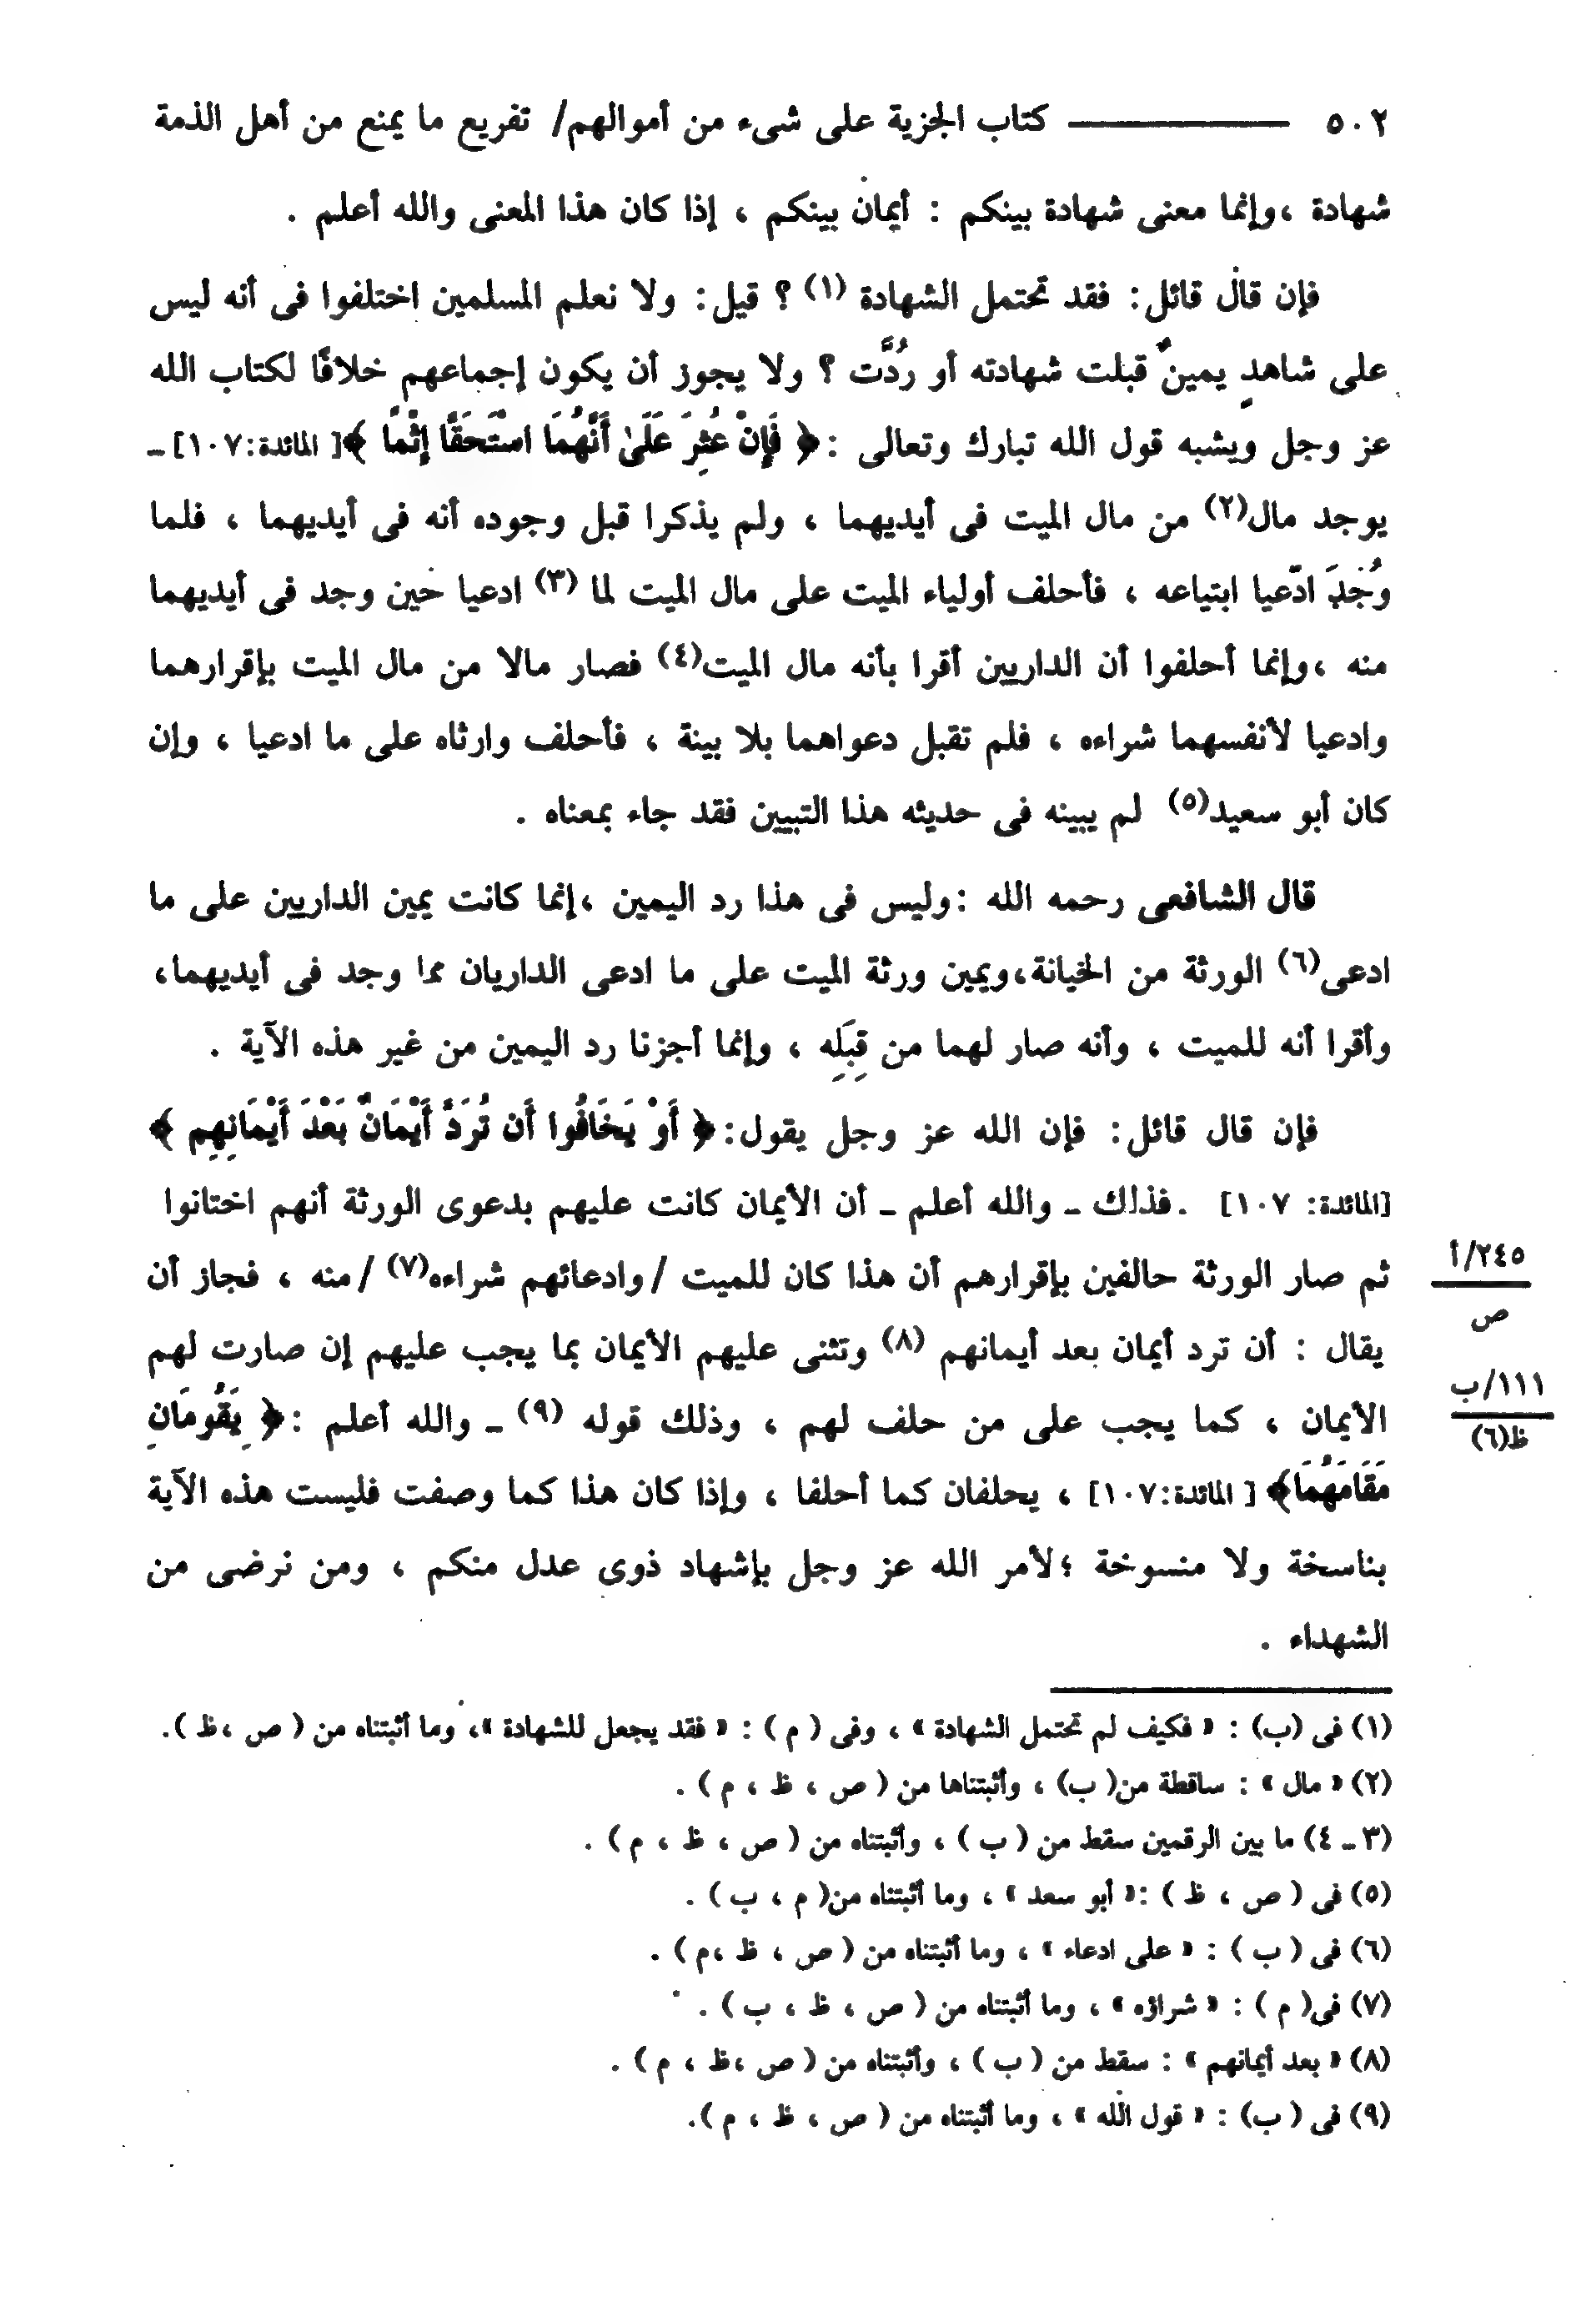 ٥٠٢ ــــــــــــ كتاب الجزية على شىء من أموالهم/ تفريع ما يمنع من أهل الذمة
شهادة ،وإنما معنى شهادة بينكم : أيمان بينكم ، إذا كان هذا المعنى والله أعلم .
فإن قال قائل: فقد تحتمل الشهادة (١) ؟ قيل: ولا نعلم المسلمين اختلفوا فى أنه ليس
على شاهدٍ يمينٌ قبلت شهادته أو رُدَّت ؟ ولا يجوز أن يكون إجماعهم خلافًا لكتاب الله
عز وجل ويشبه قول الله تبارك وتعالى :﴿ فَإِنْ عُثِرَ عَلَىٰ أَنَّهُمَا اسْتَحَقَّا إِثْمًا ﴾[ المائدة:١٠٧] ـ
يوجد مال(٢) من مال الميت فى أيديهما ، ولم يذكرا قبل وجوده أنه فى أيديهما ، فلما
وُجِدَ ادّعيا ابتياعه ، فأحلف أولياء الميت على مال الميت لما (٣) ادعيا حين وجد فى أيديهما
منه ،وإنما أحلفوا أن الداريين أقرا بأنه مال الميت(٤) فصار مالا من مال الميت بإقرارهما
وادعيا لأنفسهما شراءه ، فلم تقبل دعواهما بلا بينة ، فأحلف وارثاه على ما ادعيا ، وإن
كان أبو سعيد(٥) لم يبينه فى حديثه هذا التبيين فقد جاء بمعناه .
قال الشافعى رحمه الله :وليس فى هذا رد اليمين ،إنما كانت يمين الداريين على ما
ادعى(٦) الورثة من الخيانة،ويمين ورثة الميت على ما ادعى الداريان مما وجد فى أيديهما،
وأقرا أنه للميت ، وأنه صار لهما من قِبَلِه ، وإنما أجزنا رد اليمين من غير هذه الآية .
فإن قال قائل: فإن الله عز وجل يقول:﴿ أَوْ يَخَافُوا أَن تُرَدَّ أَيْمَانٌ بَعْدَ أَيْمَانِهِم ﴾
[المائدة: ١٠٧] .فذلك ـ والله أعلم ـ أن الأيمان كانت عليهم بدعوى الورثة أنهم اختانوا
ثم صار الورثة حالفين بإقرارهم أن هذا كان للميت /وادعائهم شراءه(٧) /منه ، فجاز أن
٢٤٥/أ
ص
يقال : أن ترد أيمان بعد أيمانهم (٨) وتثنى عليهم الأيمان بما يجب عليهم إن صارت لهم
١١١/ب
ظ(٦)
الأيمان ، كما يجب على من حلف لهم ، وذلك قوله (٩) ـ والله أعلم :﴿ يَقُومَانِ
مَقَامَهُمَا﴾ [ المائدة:١٠٧] ، يحلفان كما أحلفا ، وإذا كان هذا كما وصفت فليست هذه الآية
بناسخة ولا منسوخة ؛لأمر الله عز وجل بإشهاد ذوى عدل منكم ، ومن نرضى من
الشهداء .
(١) فى (ب) : « فكيف لم تحتمل الشهادة » ، وفى ( م ) : « فقد يجعل للشهادة »، وما أثبتناه من ( ص ،ظ ).
(٢) « مال » : ساقطة من( ب) ، وأثبتناها من ( ص ، ظ ، م ) .
(٣ ـ ٤) ما بين الرقمين سقط من ( ب ) ، وأثبتناه من ( ص ، ظ ، م ) .
(٥) فى ( ص ، ظ ) :« أبو سعد » ، وما أثبتناه من( م ، ب ) .
(٦) فى ( ب ) : « على ادعاء » ، وما أثبتناه من ( ص ، ظ ،م ) .
(٧) فى( م ) : « شراؤه » ، وما أثبتناه من ( ص ، ظ ، ب ) .
(٨) « بعد أيمانهم » : سقط من ( ب ) ، وأثبتناه من ( ص ،ظ ، م ) .
(٩) فى ( ب) : « قول الله » ، وما أثبتناه من ( ص ، ظ ، م ).